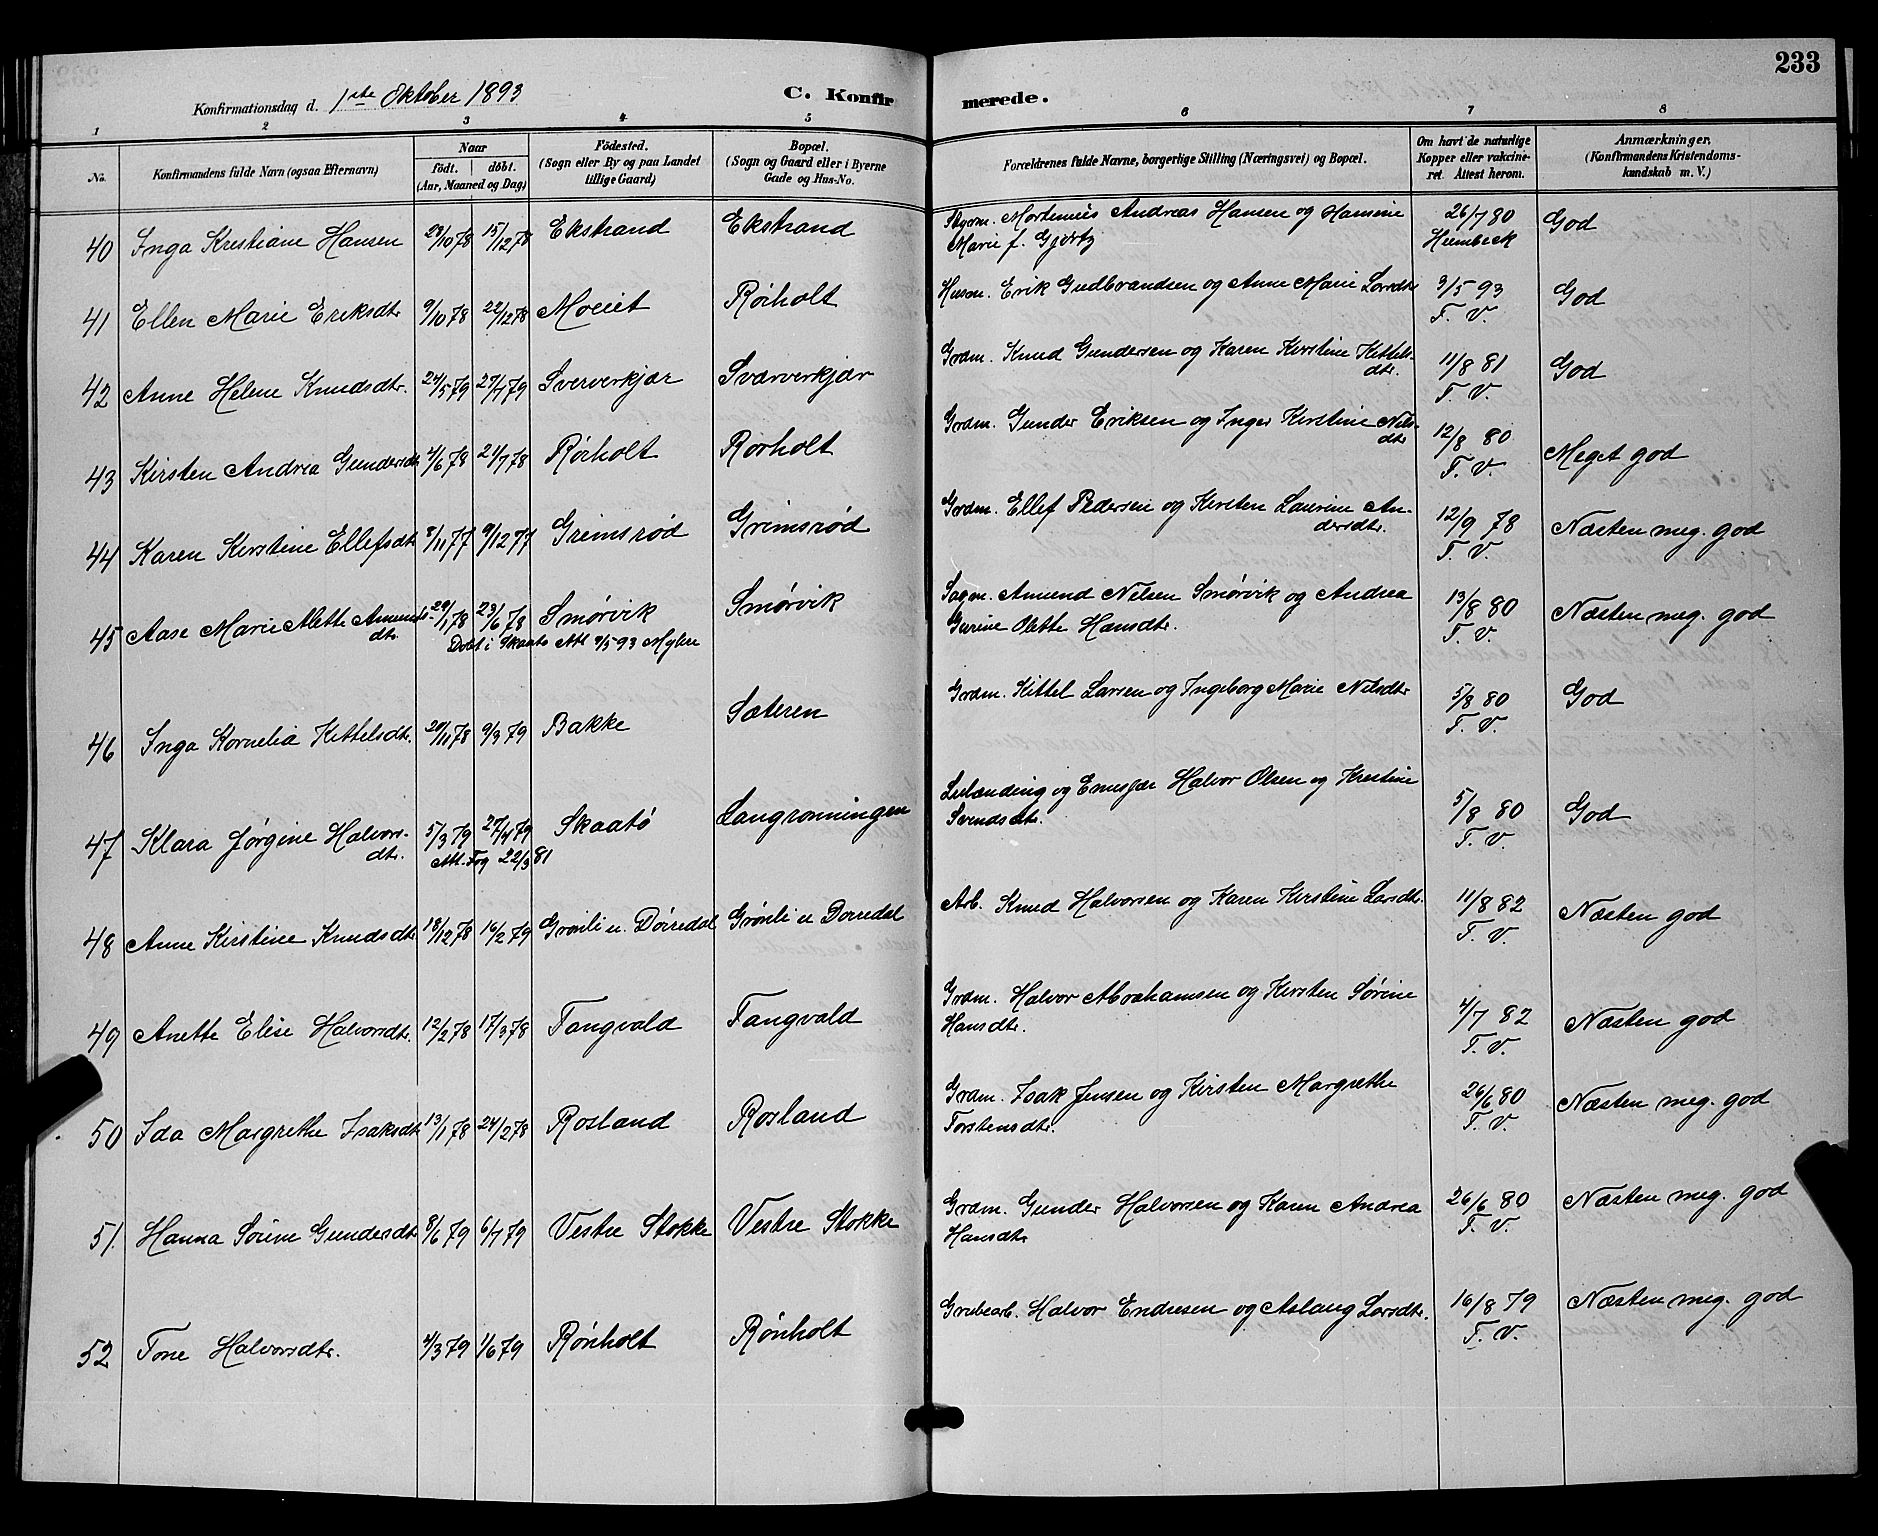 233
Konfirmationsdag d. 1ste Oktober 1893 C. Konfir merede.
1 2 3 4 5 6 7 8
No. Konfirmandens fulde Navn (ogsaa Efternavn)
Naar
födt. döbt.
(Aar, Maaned og Dag)
Födested.
(Sogn eller By og paa Landet
tillige Gaard)
Bopæl.
(Sogn og Gaard eller i Byerne
Gade og Hus-No.
Forældrenes fulde Navne, borgerlige Stilling (Næringsvei) og Bopæl.
Om havt de naturlige
Kopper eller vakcine-
ret. Attest herom.
Anmærkninger.
(Konfirmandens Kristendoms-
kundskab m. V.)
40 Inga Kristiane Hansen 23/10 78 15/12 78 Ekstrand Ekstrand Styrm. Mortinius Andreas Hansen og Hansine 26/7 80 God
Marie f. Gjertz Heimbeck
41 Ellen Marie Eriksdtr. 9/10 78 22/12 78 Moeiet Rörholt Husm. Erik Gudbrandsen og Anne Marie Larsdtr. 3/5 93 God
F. V.
42 Anne Helene Knudsdtr. 24/5 79 27/7 79 Sververkjær Sværverkjær Grdm. Knud Gundersen og Karen Kirstine Kittels- 11/8 81 God
dtr. F. V.
43 Kirsten Andrea Gundersdtr. 4/6 78 21/7 78 Rörholt Rorholt Grdm. Gunder Eriksen og Inger Kirstine Nils- 12/8 80 Meget god
dtr. F. V.
44 Karen Kirstine Ellefsdtr. 8/11 77 9/12 77 Grimsrød Grimsrød Grdm. Ellef Pedersen og Kirsten Laurine An- 12/9 78 Næsten meg. god
dersdtr. F. V.
45 Aase Marie Alette Amunds- 29/1 78 23/6 78 Smørvik Smørvik Sagm. Amund Nilsen Smørvik og Andrea 13/8 80 Næsten meg. god
dtr. Döbt i Skaatö Att. 9/5 93 Gurine Olette Hansdtr. F. V.
46 Inga Kornelia Kittelsdtr. 20/11 78 9/3 79 Bakke Sæteren Grdm. Kittel Larsen og Ingeborg Marie Nilsdtr. 5/8 80 God
F. V.
47 Klara Jørgine Halvors- 5/3 79 27/4 79 Skaatö Langrønningen Leilænding og Halvor Olsen og Kristine 5/8 80 God
dtr. Att. Fog 22/3 81 Svendsdtr. F. V.
48 Anne Kirstine Knudsdtr. 18/12 78 16/2 79 Grönli u. Dörredal Grönli u Dorredal Arb. Knud Halvorsen og Karen Kirstine Larsdtr. 11/8 82 Næsten god
F. V.
49 Anette Elise Halvorsdtr. 12/2 78 17/3 78 Tangvald Tangvald Grdm. Halvor Abrahamsen og Kirsten Sørine 4/7 82 Næsten god
Hansdtr. F. V.
50 Ida Margrethe Isaksdtr. 13/1 78 24/2 78 Rosland Rosland Grdm. Isak Jensen og Kirsten Margrethe 26/6 80 Næsten meg. god
Torstensdtr. F. V.
51. Hanna Sörine Gundersdtr. 8/6 79 6/7 79 Vestre Stokke Vestre Stokke Grdm. Gunder Halvorsen og Karen Andrea 26/6 80 Næsten meg. god
Hansdtr. F. V.
52 Tone Halvorsdtr. 4/3 79 1/6 79 Rönholt Rönholt Grubearb. Halvor Endresen og Aslaug Larsdtr. 16/8 79 Næsten meg. god
F. V.